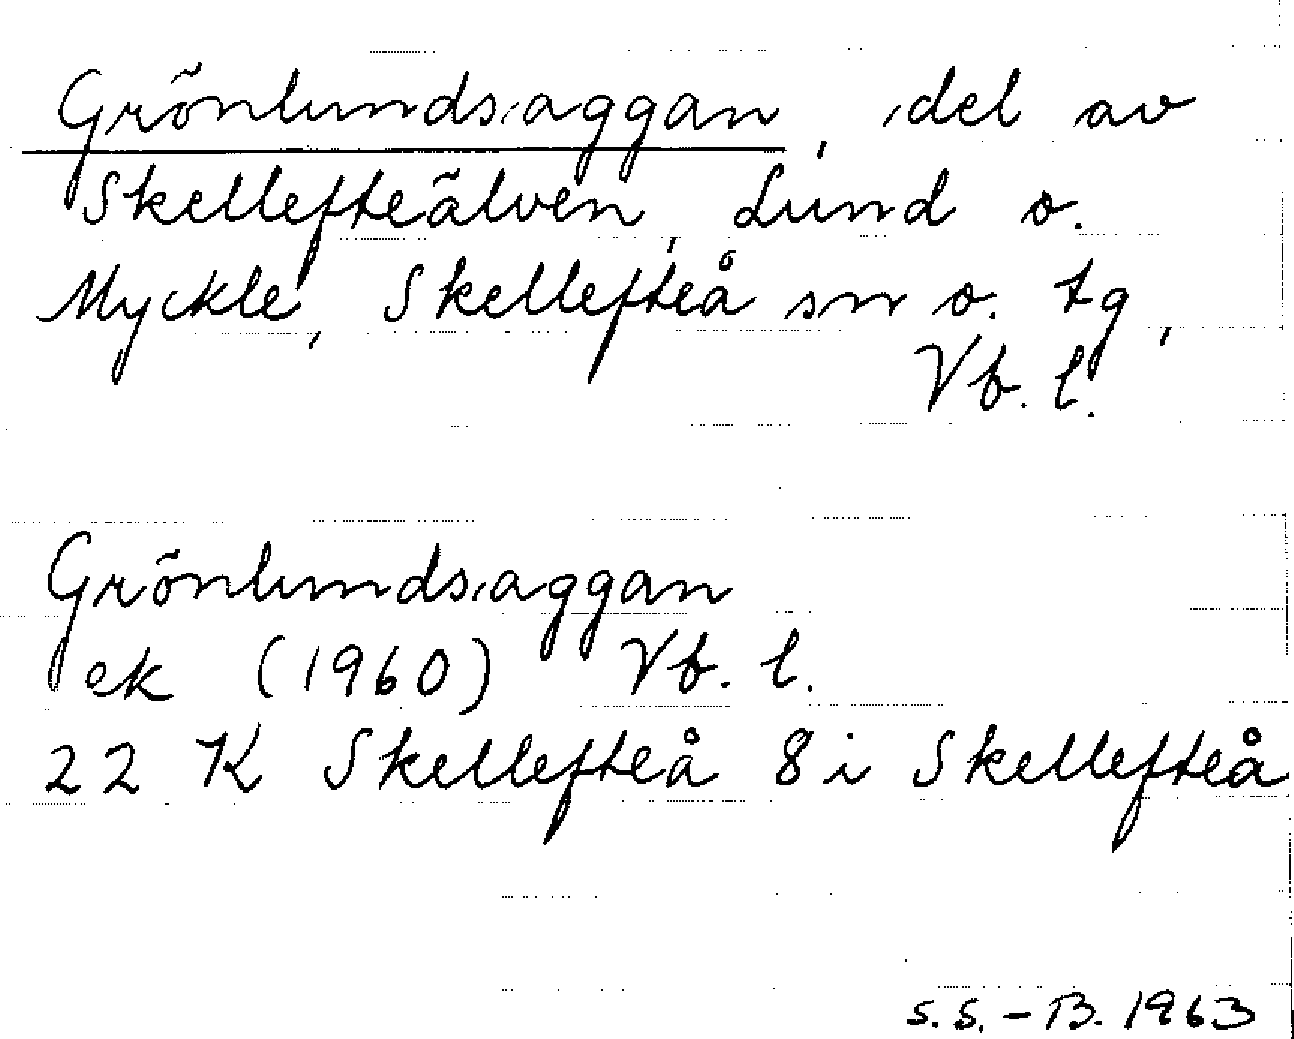 Grönlundsaggan, del av
Skellefteälven, Lund o.
Myckle, Skellefteå sn o. tg,
Vb. l.
Grönlundsaggan
ek (1960) Vb. l.
22 K Skellefteå 8 i Skellefteå
S.S.-B. 1963